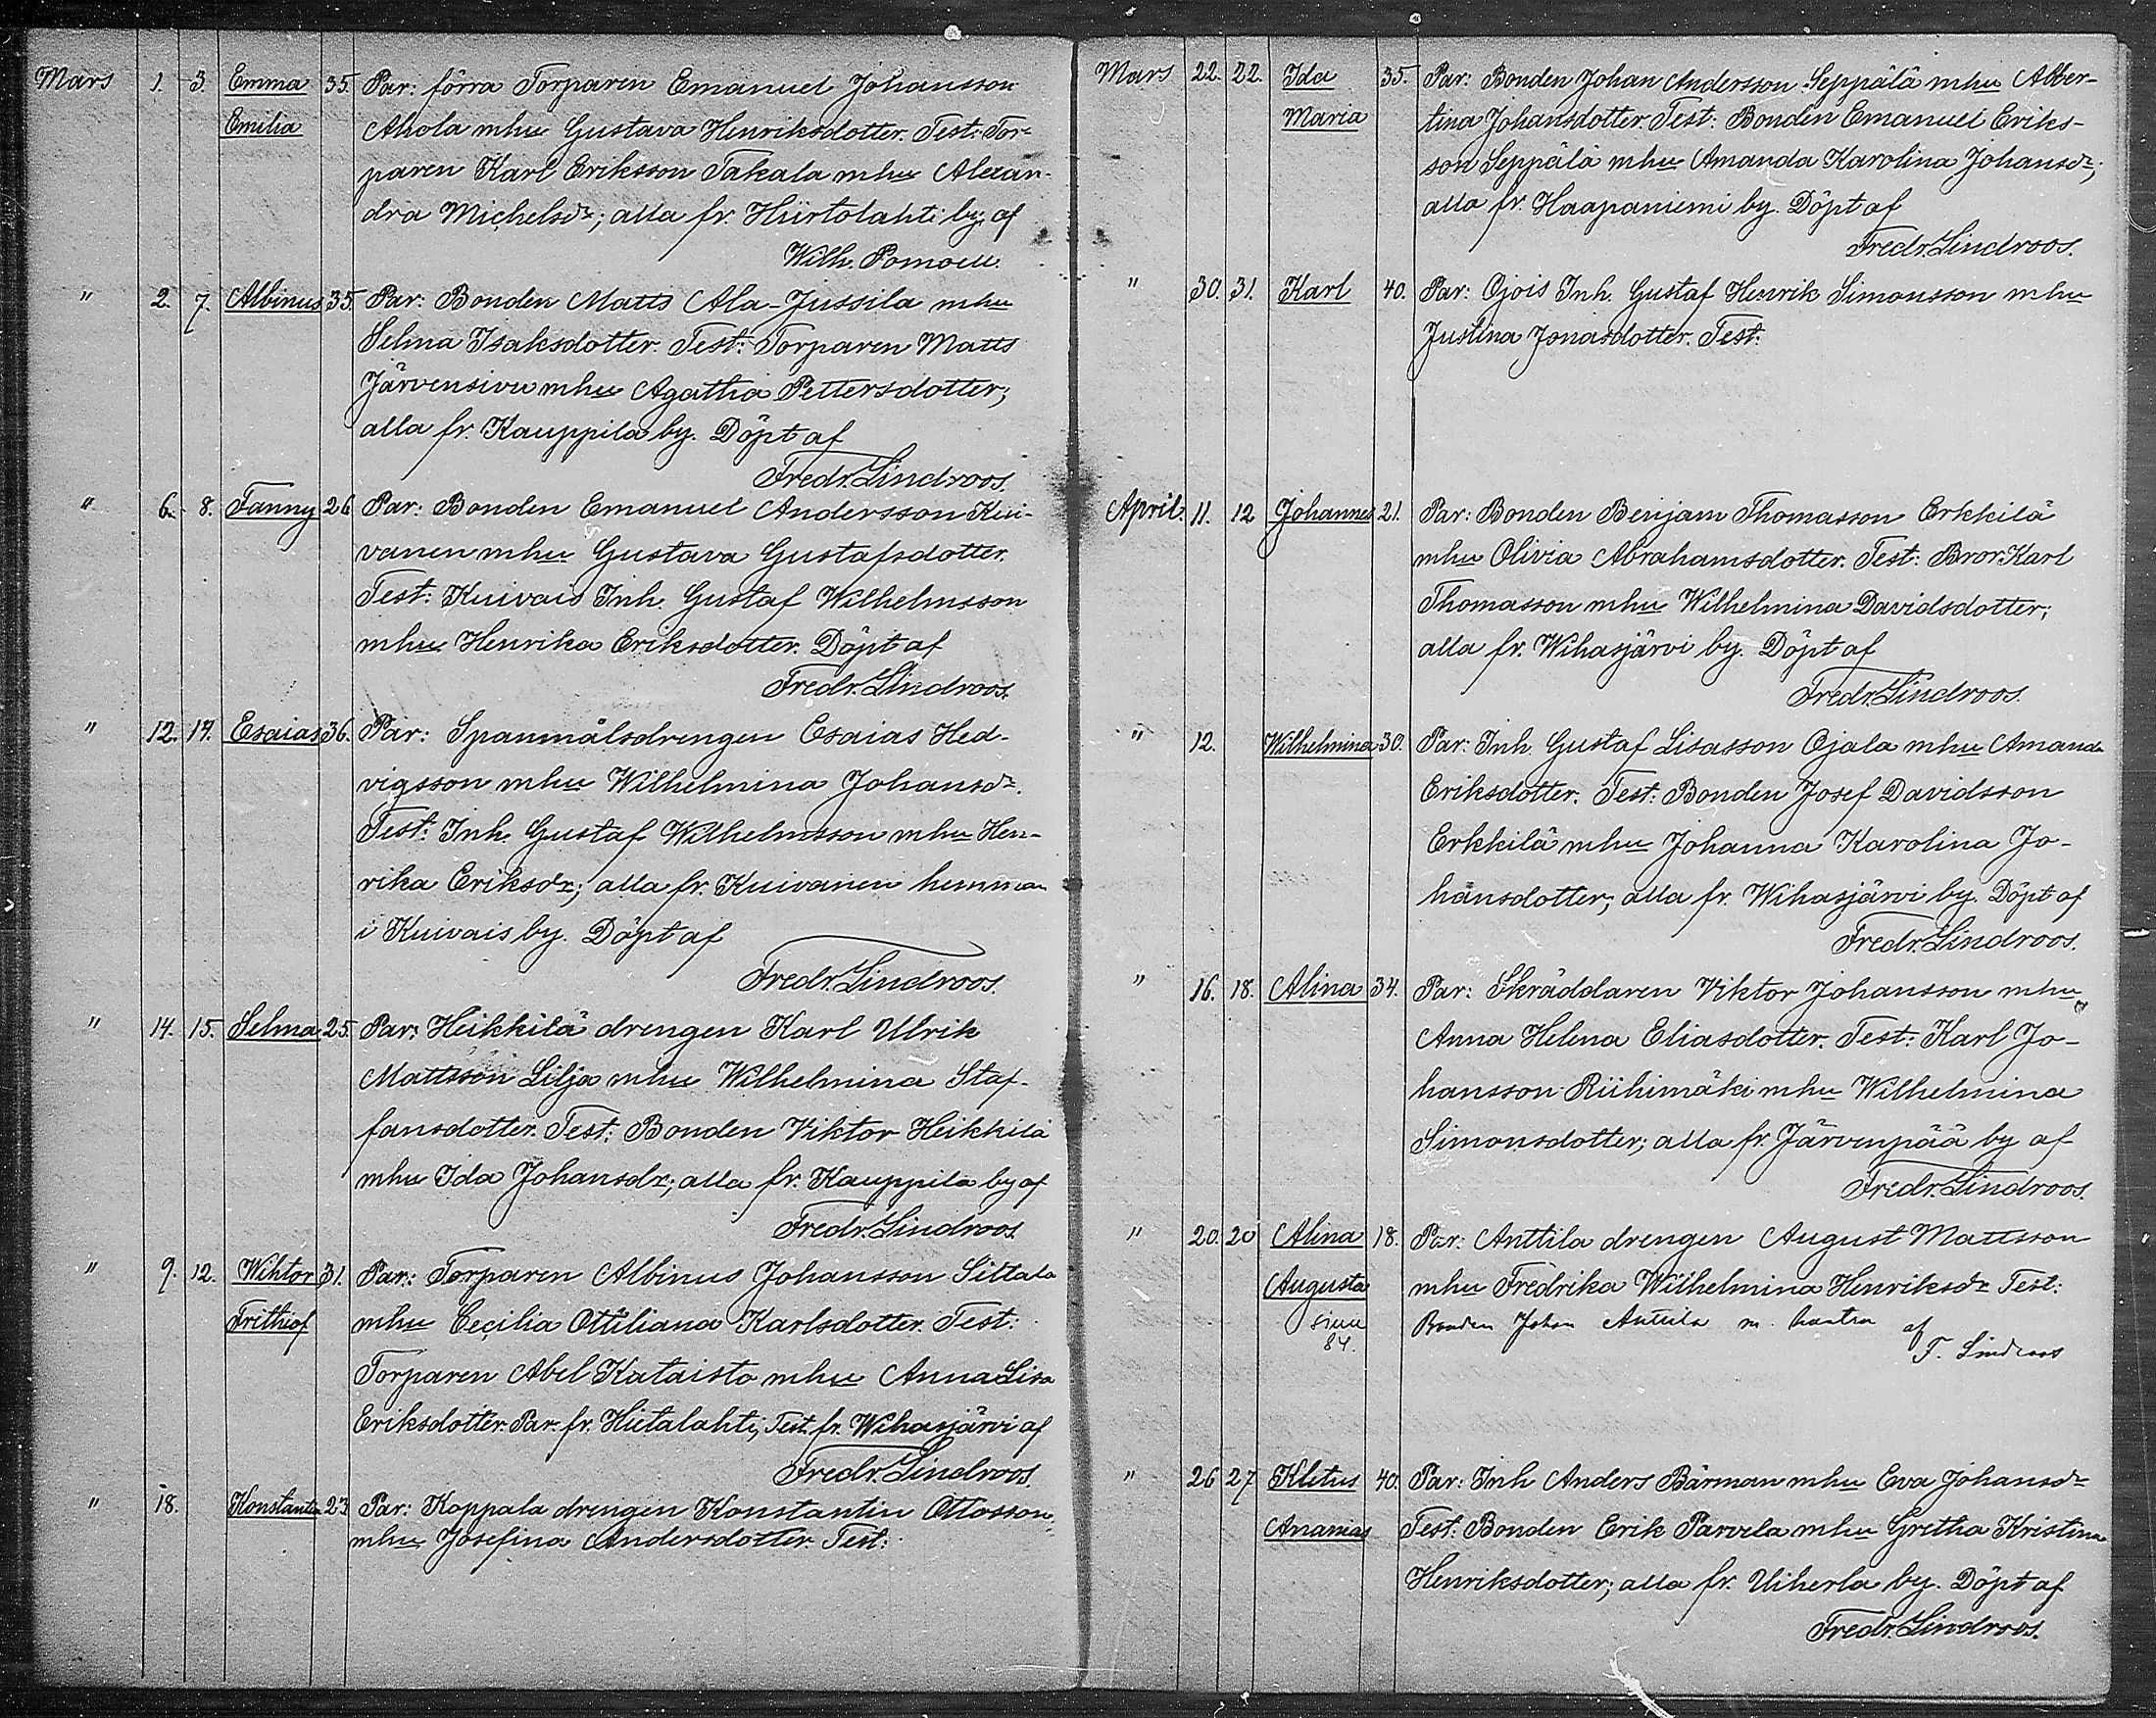 Mars 1. 3. Emma 35. Par: förra Torparen Emanuel Johansson
Emilia Ahola mhu Gustava Henriksdotter. Test: Tor-
paren Karl Eriksson Takala mhu Alexan-
dra Michelsdr; alla fr. Hiirtolahti by, af
Wilh. Pomoell.
" 2. 7. Albinus 35. Par: Bonden Matts Ala-Jussila mhu
Selma Isaksdotter. Test: Torparen Matts
Järvensivu mhu Agatha Pettersdotter;
alla fr. Kauppila by. Döpt af
Fredr. Lindroos.
" 6. 8. Fanny 26 Par: Bonden Emanuel Andersson Kui-
vanen mhu Gustava Gustafsdotter.
Test: Kuivais Inh. Gustaf Wilhelmsson
mhu Henrika Eriksdotter. Döpt af
Fredr. Lindroos.
" 12. 14. Esaias 36. Par: Spanmålsdrengen Esaias Hed-
vigsson mhu Wilhelmina Johansdr.
Test: Inh. Gustaf Wilhelmsson mhu Hen-
rika Eriksdr; alla fr. Kuivanen hemman
i Kuivais by. Döpt af
Fredr. Lindroos.
" 14. 15. Selma 25. Par: Heikkilä drengen Karl Ulrik
Mattsson Lilja mhu Wilhelmina Staf-
fansdotter. Test: Bonden Viktor Heikkilä
mhu Ida Johansdr; alla fr. Kauppila by af
Fredr. Lindroos.
" 9. 12. Wiktor 31. Par: Torparen Albinus Johansson Siltala
Frithiof mhu Cecilia Ottiliana Karlsdotter. Test:
Torparen Abel Kataisto mhu Anna Lisa
Eriksdotter. Par. fr. Hietalahti, Test. fr. Wihasjärvi af
Fredr. Lindroos.
" 18. Konstantin 23 Par: Koppala drengen Konstantin Ottosson
mhu Josefina Andersdotter. Test:
Mars 22. 22. Ida 35. Par: Bonden Johan Andersson Seppälä mhu Alber-
Maria tina Johansdotter. Test: Bonden Emanuel Eriks-
son Seppälä mhu Amanda Karolina Johansdr;
alla fr. Haapaniemi by. Döpt af
Fredr. Lindroos.
" 30. 31. Karl 40. Par: Ojois Inh. Gustaf Henrik Simonsson mhu
Justina Jonasdotter. Test:
April. 11. 12 Johannes 21. Par: Bonden Benjam Thomasson Erkkilä
mhu Olivia Abrahamsdotter. Test: Bror. Karl
Thomasson mhu Wilhelmina Davidsdotter;
alla fr. Wihasjärvi by. Döpt af
Fredr. Lindroos.
" 12. Wilhelmina 30. Par: Inh. Gustaf Lisasson Ojala mhu Amanda
Eriksdotter. Test: Bonden Josef Davidsson
Erkkilä mhu Johanna Karolina Jo-
hansdotter; alla fr. Wihasjärvi by. Döpt af
Fredr. Lindroos.
" 16. 18. Alina 34. Par: Skräddaren Viktor Johansson mhu
Anna Helena Eliasdotter. Test: Karl Jo-
hansson Riihimäki mhu Wilhelmina
Simonsdotter; alla fr. Järvenpää by af
Fredr. Lindroos.
" 20. 20 Alina 18. Par: Anttila drengen August Mattsson
Augusta mhu Fredrika Wilhelmina Henriksdr Test:
Bonden Johan Anttila m. hustru af
84. F. Lindroos
" 26 27 Kletus 40. Par: Inh Anders Bärman mhu Eva Johansdr
Ananias Test: Bonden Erik Parvela mhu Gretha Kristina
Henriksdotter; alla fr. Uiherla by. Döpt af
Fredr. Lindroos.